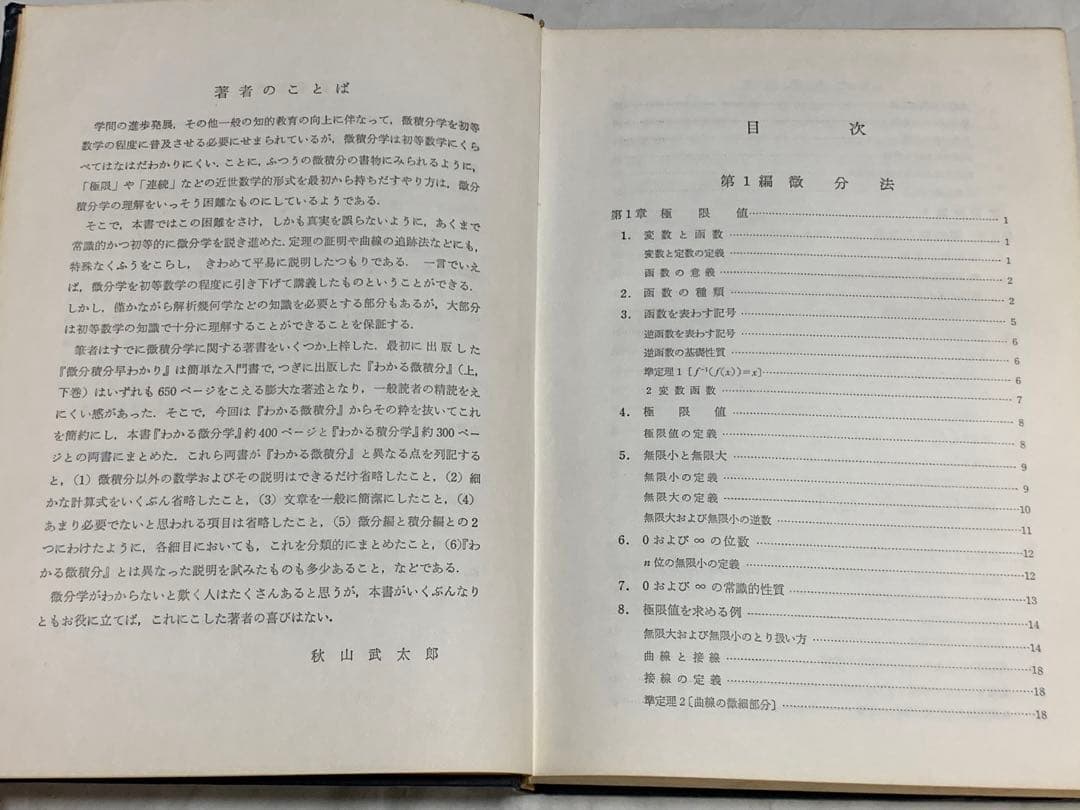 著者のことば
学問の進歩発展，その他一般の知的教育の向上に伴なって，微積分学を初等
数学の程度に普及させる必要にせまられているが，微積分学は初等数学にくら
べてはなはだわかりにくい．ことに，ふつうの微積分の書物にみられるように，
「極限」や「連続」などの近世数学的形式を最初から持ちだすやり方は，微分
積分学の理解をいっそう困難なものにしているようである．
そこで，本書ではこの困難をさけ，しかも真実を誤らないように，あくまで
常識的かつ初等的に微分学を説き進めた．定理の証明や曲線の追跡法などにも，
特殊なくふうをこらし，きわめて平易に説明したつもりである．一言でいえ
ば，微分学を初等数学の程度に引き下げて講義したものということができる．
しかし，僅かながら解析幾何学などの知識を必要とする部分もあるが，大部分
は初等数学の知識で十分に理解することができることを保証する．
筆者はすでに微積分学に関する著書をいくつか上梓した．最初に出版した
『微分積分早わかり』は簡単な入門書で，つぎに出版した『わかる微積分』（上，
下巻）はいずれも650ページをこえる膨大な著述となり，一般読者の精読をえ
にくい感があった．そこで，今回は『わかる微積分』からその粋を抜いてこれ
を簡約にし，本書『わかる微分学』約400ページと『わかる積分学』約300ペー
ジとの両書にまとめた．これら両書が『わかる微積分』と異なる点を列記する
と，（1）微積分以外の数学およびその説明はできるだけ省略したこと，（2）細
かな計算式をいくぶん省略したこと，（3）文章を一般に簡潔にしたこと，（4）
あまり必要でないと思われる項目は省略したこと，（5）微分編と積分編との2
つにわけたように，各細目においても，これを分類的にまとめたこと，（6）『わ
かる微積分』とは異なった説明を試みたものも多少あること，などである．
微分学がわからないと歎く人はたくさんあると思うが，本書がいくぶんなり
ともお役に立てば，これにこした著者の喜びはない．
秋山武太郎
目次
第1編 微分法
第1章 極限値 1
1．変数と函数 1
変数と定数の定義 1
函数の意義 2
2．函数の種類 2
3．函数を表わす記号 5
逆函数を表わす記号 6
逆函数の基礎性質 6
準定理1［f⁻¹(f(x))=x］ 6
2変数函数 7
4．極限値 8
極限値の定義 8
5．無限小と無限大 9
無限小の定義 9
無限大の定義 10
無限大および無限小の逆数 11
6．0および∞の位数 12
n位の無限小の定義 12
7．0および∞の常識的性質 13
8．極限値を求める例 14
無限大および無限小のとり扱い方 14
曲線と接線 18
接線の定義 18
準定理2［曲線の微細部分］ 18